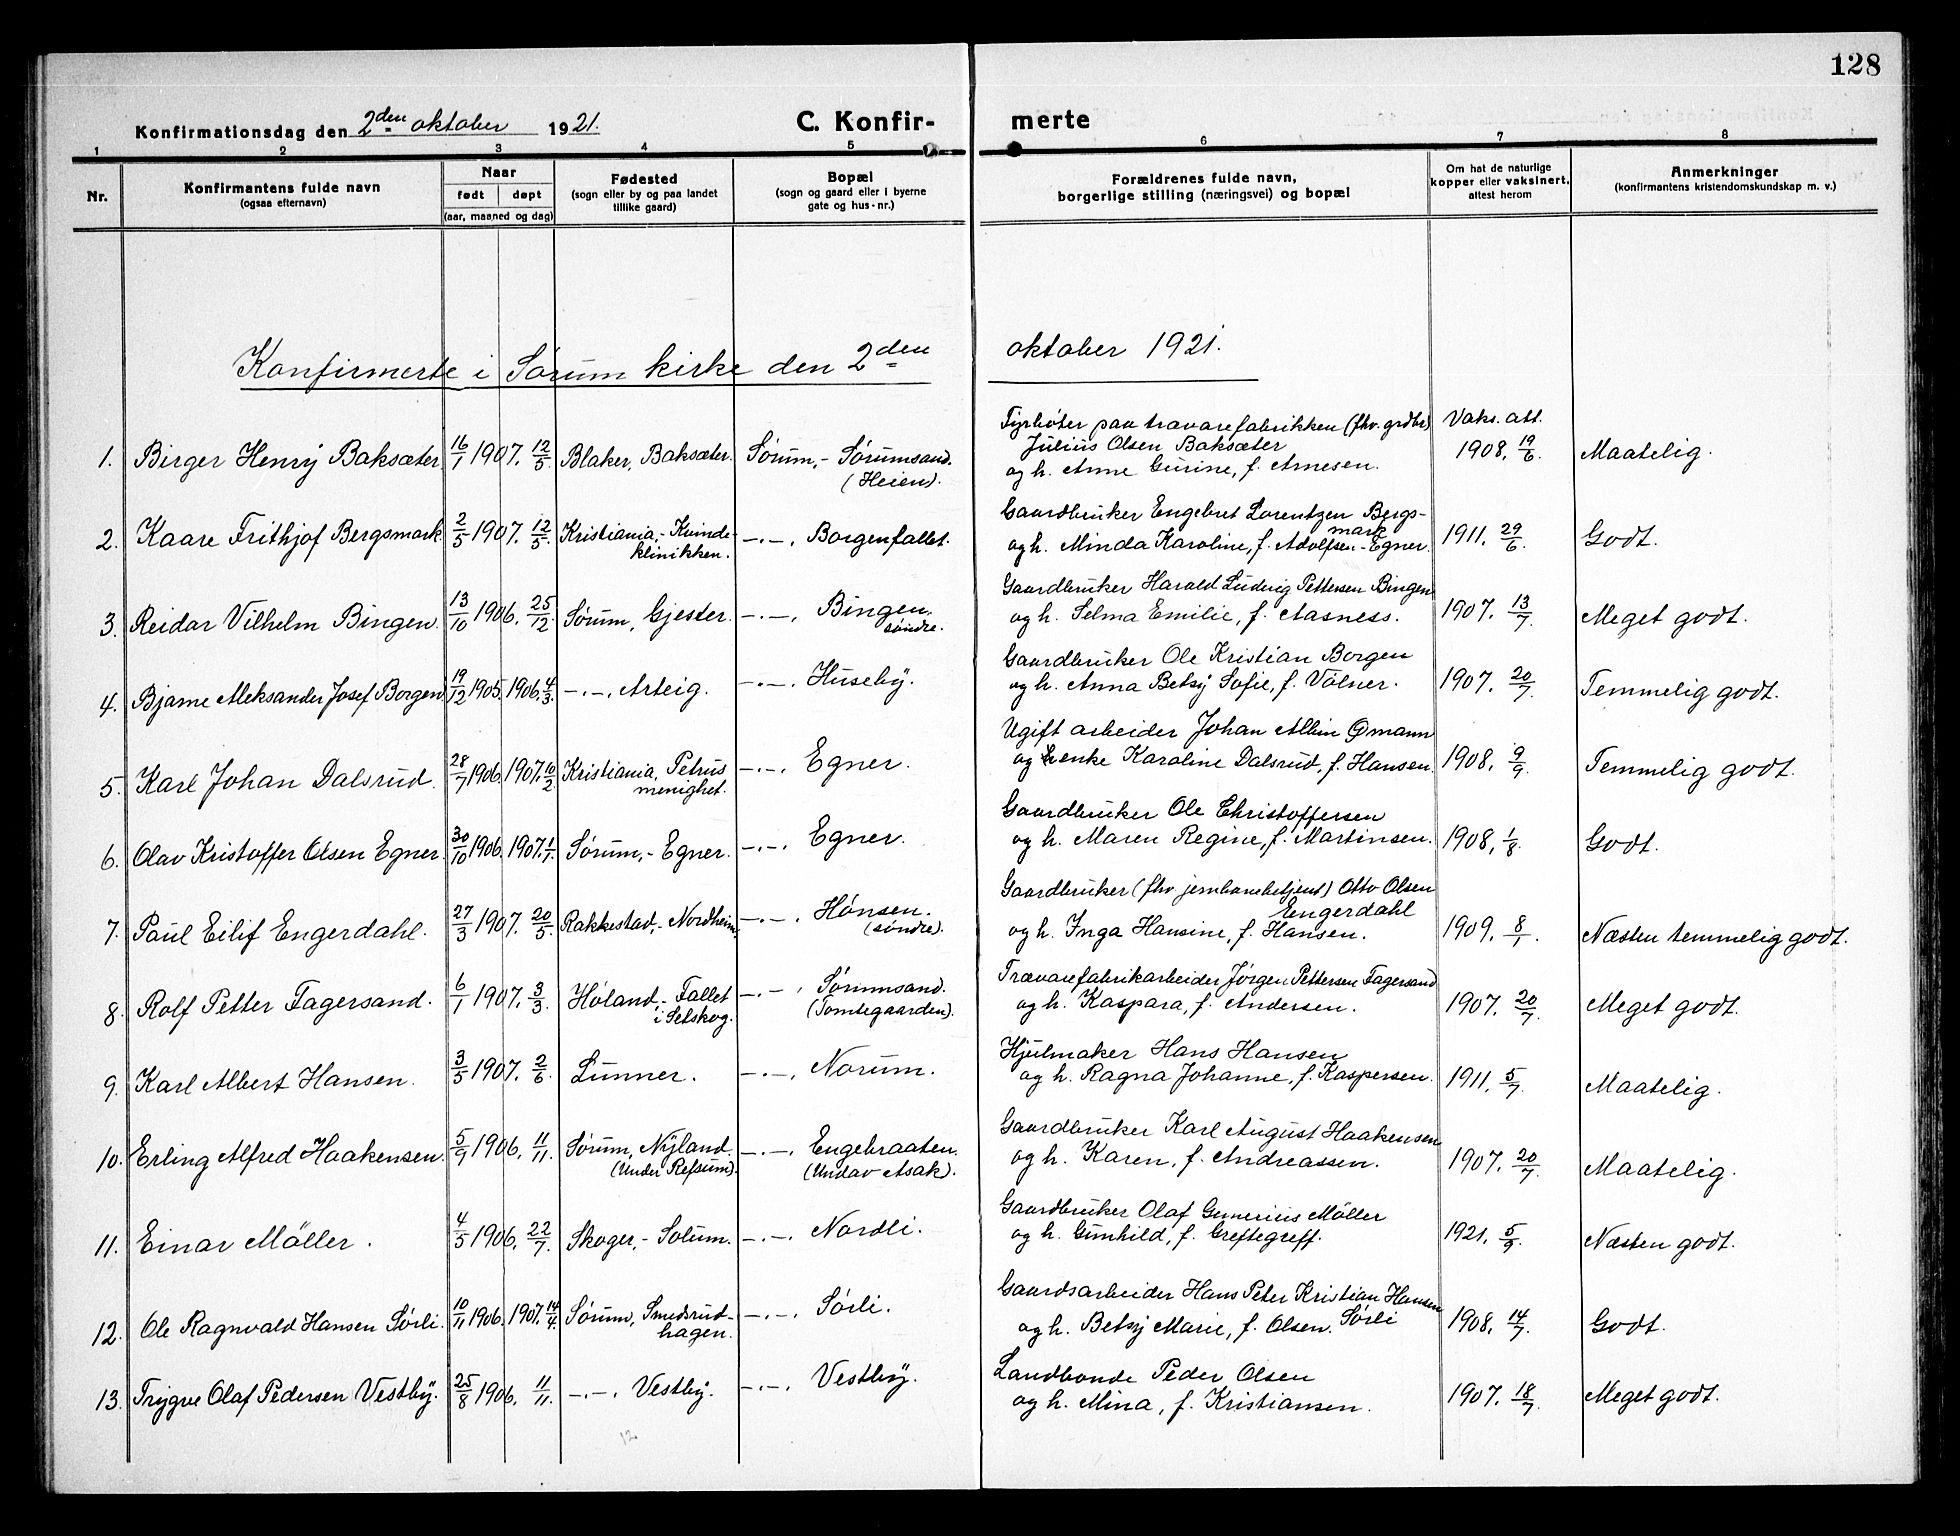 128
Konfirmationsdag den 2den oktober 1921.
C. Konfirmerte
1 2 3 4 5 6 7 8
Nr.
Konfirmantens fulde navn
(ogsaa efternavn)
Naar
født døpt
(aar, maaned og dag)
Fødested
(sogn eller by og paa landet
tillike gaard)
Bopæl
(sogn og gaard eller i byerne
gate og hus-nr.)
Forældrenes fulde navn,
borgerlige stilling (næringsvei) og bopæl
Om hat de naturlige
kopper eller vaksinert,
attest herom
Anmerkninger
(konfirmantens kristendomskundskap m. v.)
Konfirmerte i Sørum kirke den 2den oktober 1921.
Fyrbøter paa trævarefabrikken (fhv. grdbr) Vaks. att.
1. Birger Henry Baksæter 16/1 1907. 12/5 Blaker, Baksæter. Sørum,- Sørumsand. Julius Olsen Baksæter 1908, 19/6. Maatelig.
(Heien). og h. Anne Gurine, f. Arnesen.
Gaardbruker Engebret Lorentzen Bergs-
mark
2. Kaare Frithjof Bergsmark 2/5 1907. 12/5. Kristiania,- Kvinde- -.-, Borgenfallet. og h. Minda Karoline, f. Adolfsen-Egner. 1911. 29/6. Godt.
klinikken.
Gaardbruker Harald Ludvig Pettersen Bingen
3. Reidar Vilhelm Bingen. 13/10 1906. 25/12. Sørum, Gjester. -.-, Bingen. og h. Selma Emilie, f. Aasness. 1907. 13/7. Meget godt.
søndre.
Gaardbruker Ole Kristian Borgen
4. Bjarne Aleksander Josef Borgen 19/12 1905. 1906. 4/3. -.-, Arteig. -.-, Huseby. og h. Anna Betsy Sofie, f. Vølner. 1907. 20/7. Temmelig godt.
Ugift arbeider Johan Albin Ømann
5. Karl Johan Dalsrud. 28/7 1906. 1907. 10/2. Kristiania, Petrus -.-, Egner. og enke Karoline Dalsrud, f. Hansen. 1908, 9/9. Temmelig godt.
menighet.
Gaardbruker Ole Christoffersen
6. Olav Kristoffer Olsen Egner. 30/10 1906. 1907. 1/1. Sørum,- Egner. -.-, Egner. og h. Maren Regine, f. Martinsen. 1908, 1/8. Godt.
Gaardbruker (fhv jernbanebetjent) Otto Olsen
Engerdahl
7. Paul Eilif Engerdahl. 27/3 1907. 20/5. Rakkestad,- Nordheim, -.-, Hønsen. og h. Inga Hansine, f. Hansen. 1909. 8/1. Næsten temmelig godt.
(søndre).
Trævarefabrikarbeider Jørgen Pettersen Fagersand
8. Rolf Petter Fagersand. 6/1 1907. 3/3. Høland,- Fallet -.-, Sørumsand. og h. Kaspara, f. Andersen. 1907. 20/7. Meget godt.
i Setskog. (Tomtegaarden).
Hjulmaker Hans Hansen
9. Karl Albert Hansen. 3/5 1907. 2/6. Lunner. -.-, Norum. og h. Ragna Johanne, f. Kaspersen. 1911. 5/7. Maatelig.
Gaardbruker Karl August Haakensen
10. Erling Alfred Haakensen. 5/9 1906. 11/11. Sørum, Nyland. -.-, Engebraaten. og h. Karen, f. Andreassen. 1907. 20/7. Maatelig.
(Under Refsum). (Undav Asak).
Gaardbruker Olaf Gunerius Møller
11. Einar Møller. 4/5 1906. 22/7. Skoger,- Solum. -.-, Nordli. og h. Gunhild, f. Greftegreff. 1921. 5/9. Næsten godt.
Gaardsarbeider Hans Peter Kristian Hansen
Sørli
12. Ole Ragnvald Hansen Sørli. 10/11 1906. 1907. 14/4. Sørum, Smedsrud- -.-, Sørli. og h. Betsy Marie, f. Olsen. 1908. 14/7. Godt.
hagen.
Landbonde Peder Olsen
13. Trygve Olaf Pedersen Vestby. 25/8 1906. 11/11. -.-, Vestby. -.-, Vestby. og h. Mina, f. Kristiansen. 1907. 18/7. Meget godt.
12